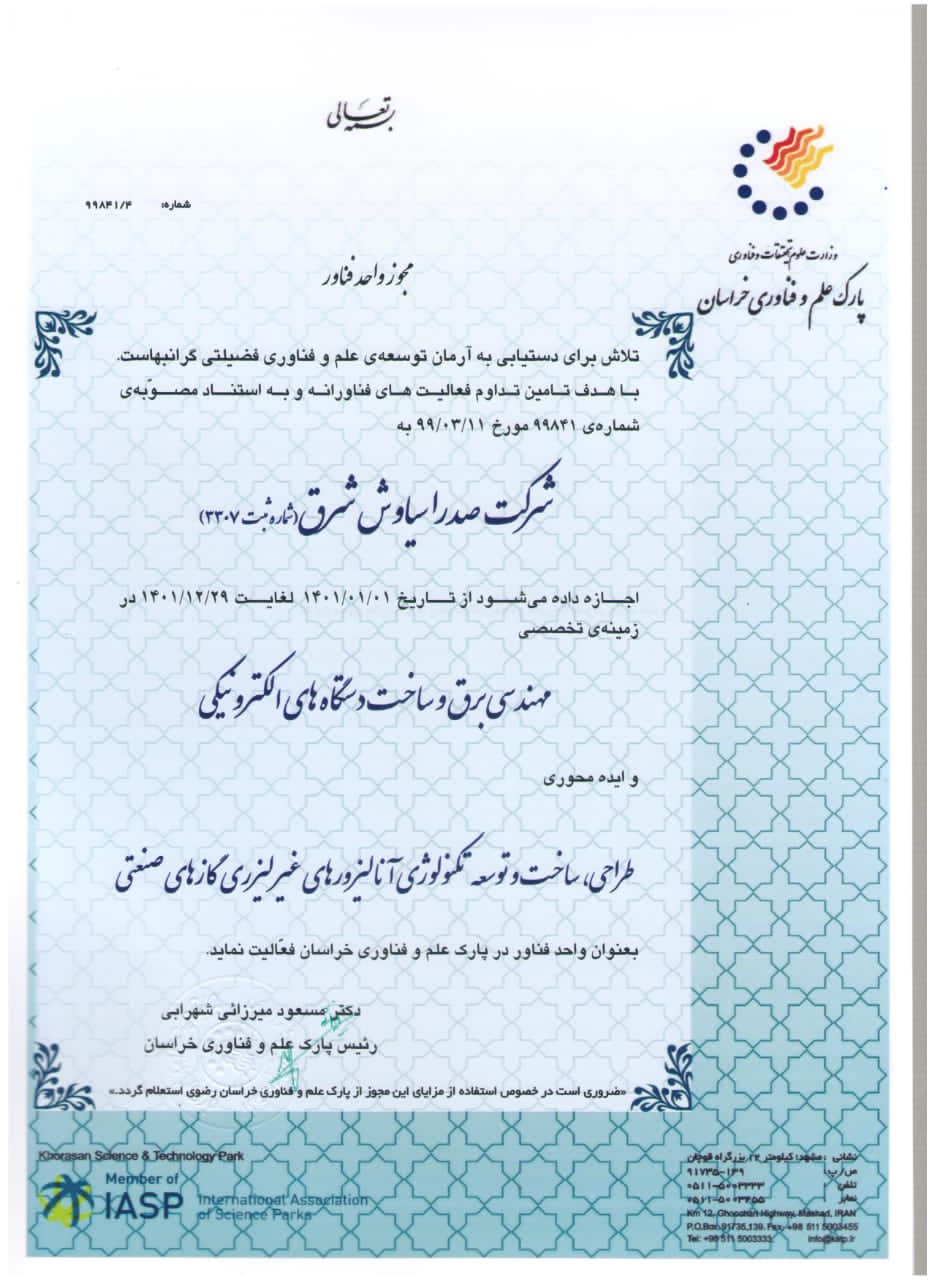 بسمه تعالی
شماره: ۹۹۸۴۱/۴
وزارت علوم تحقیقات و فناوری
پارک علم و فناوری خراسان
مجوز واحد فناور
تلاش برای دستیابی به آرمان توسعه‌ی علم و فناوری فضیلتی گرانبهاست.
با هدف تامین تداوم فعالیت های فناورانه و به استناد مصوّبه‌ی
شماره‌ی ۹۹۸۴۱ مورخ ۹۹/۰۳/۱۱ به
شرکت صدرا سیاوش شرق (شماره ثبت ۳۳۰۷)
اجازه داده می‌شود از تاریخ ۱۴۰۱/۰۱/۰۱ لغایت ۱۴۰۱/۱۲/۲۹ در
زمینه‌ی تخصصی
مهندسی برق و ساخت دستگاه های الکترونیکی
و ایده محوری
طراحی، ساخت و توسعه تکنولوژی آنالیزورهای غیر لیزری گازهای صنعتی
بعنوان واحد فناور در پارک علم و فناوری خراسان فعّالیت نماید.
دکتر مسعود میرزائی شهرابی
رئیس پارک علم و فناوری خراسان
«ضروری است در خصوص استفاده از مزایای این مجوز از پارک علم و فناوری خراسان رضوی استعلام گردد.»
Khorasan Science & Technology Park
Member of
IASP
International Association
of Science Parks
نشانی : مشهد؛ کیلومتر ۱۲ بزرگراه قوچان
ص/پ: ۹۱۷۳۵-۱۳۹
تلفن : ۰۵۱۱-۵۰۰۳۳۳۳
نمابر : ۰۵۱۱-۵۰۰۳۴۵۵
Km 12, Ghochan Highway, Mashad, IRAN
P.O.Box:91735,139. Fax: +98 511 5003455
Tel: +98 511 5003333 info@kstp.ir